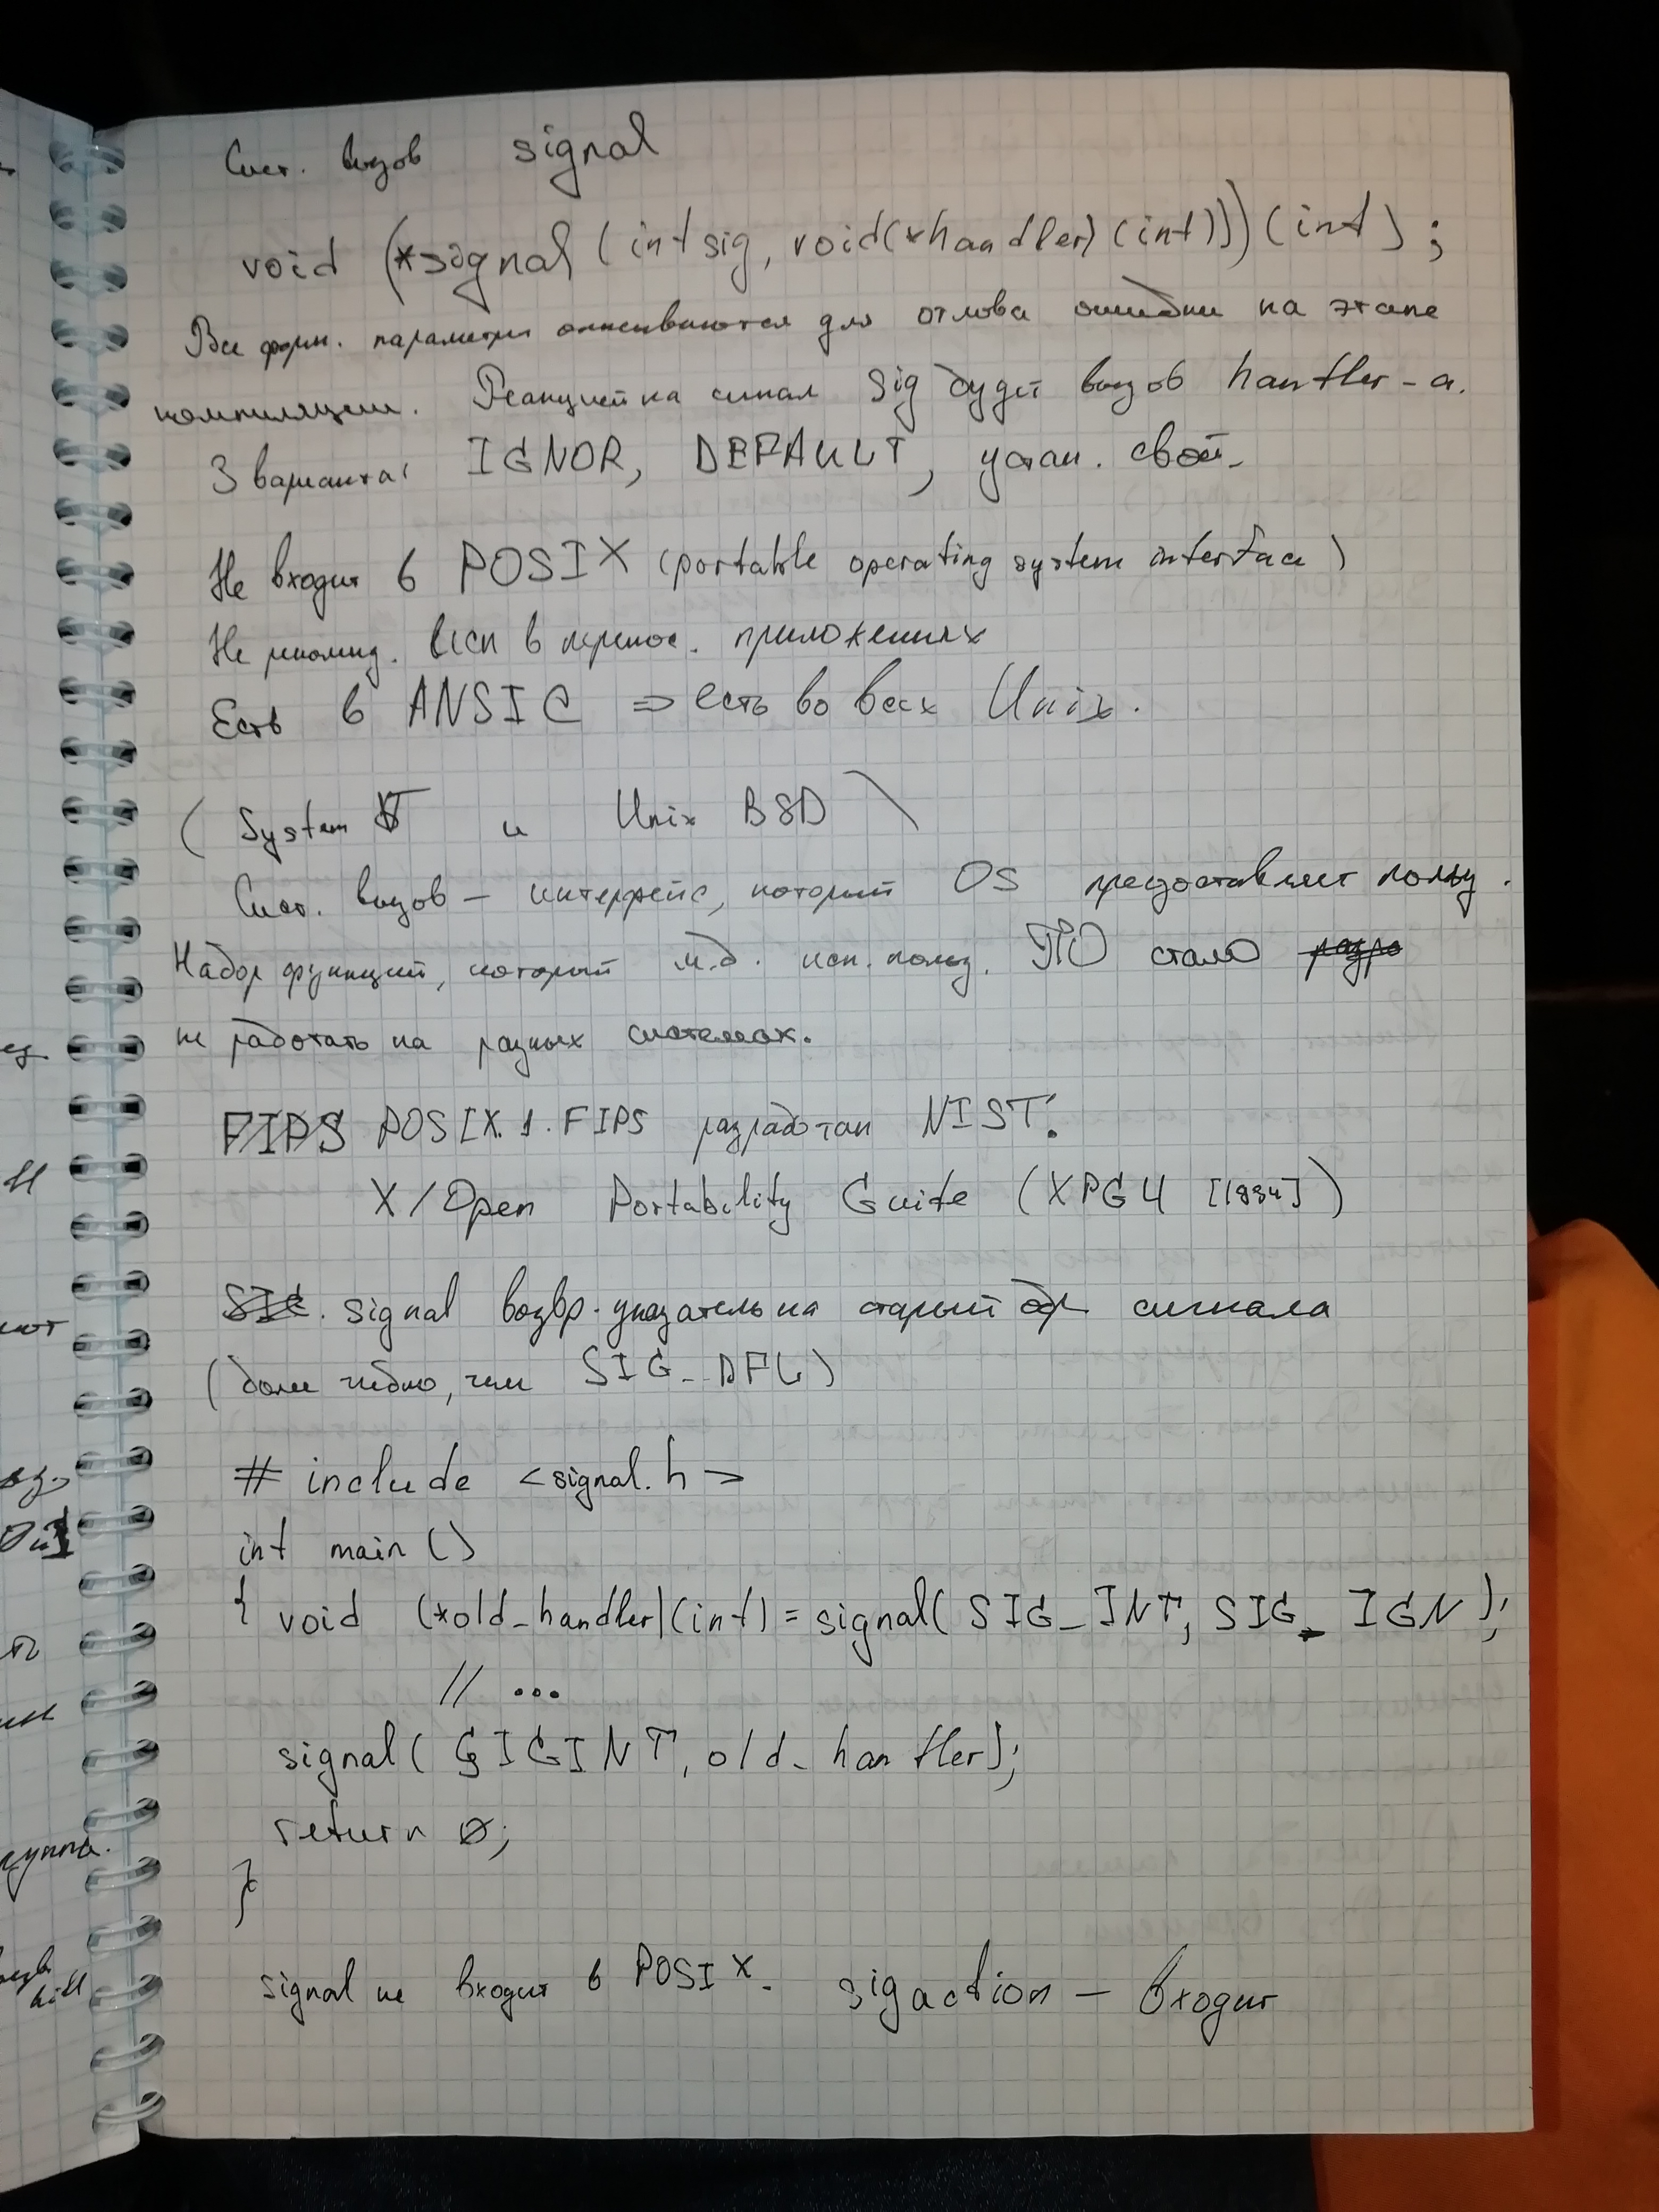 Сист. вызов signal
void (*signal (int sig, void(*handler) (int)))(int);
Все форм. параметры описываются для отлова ошибки на этапе
компиляции. Реакцией на сигнал sig будет вызов handler-а.
3 варианта: IGNOR, DEFAULT, устан. свой.
Не входит в POSIX (portable operating system interface)
Не рекоменд. исп в перенос. приложениях
Есть в ANSI C => есть во всех Unix.
( System V и Unix BSD )
Сист. вызов – интерфейс, который OS предоставляет польз.
Набор функций, который м.б. исп. польз. ПО стало
не работать на разных системах.
FIPS POSIX.1. FIPS разработан NIST.
X/Open Portability Guide (XPG4 [1994])
signal возвр. указатель на старый обр сигнала
(более гибко, чем SIG_DFL)
# include <signal.h>
int main ()
{ void (*old_handler)(int) = signal( SIG_INT, SIG_IGN );
// ...
signal( SIGINT, old_handler);
return 0;
}
signal не входит в POSIX. sigaction – входит
ез
н
ют
группа.
kill